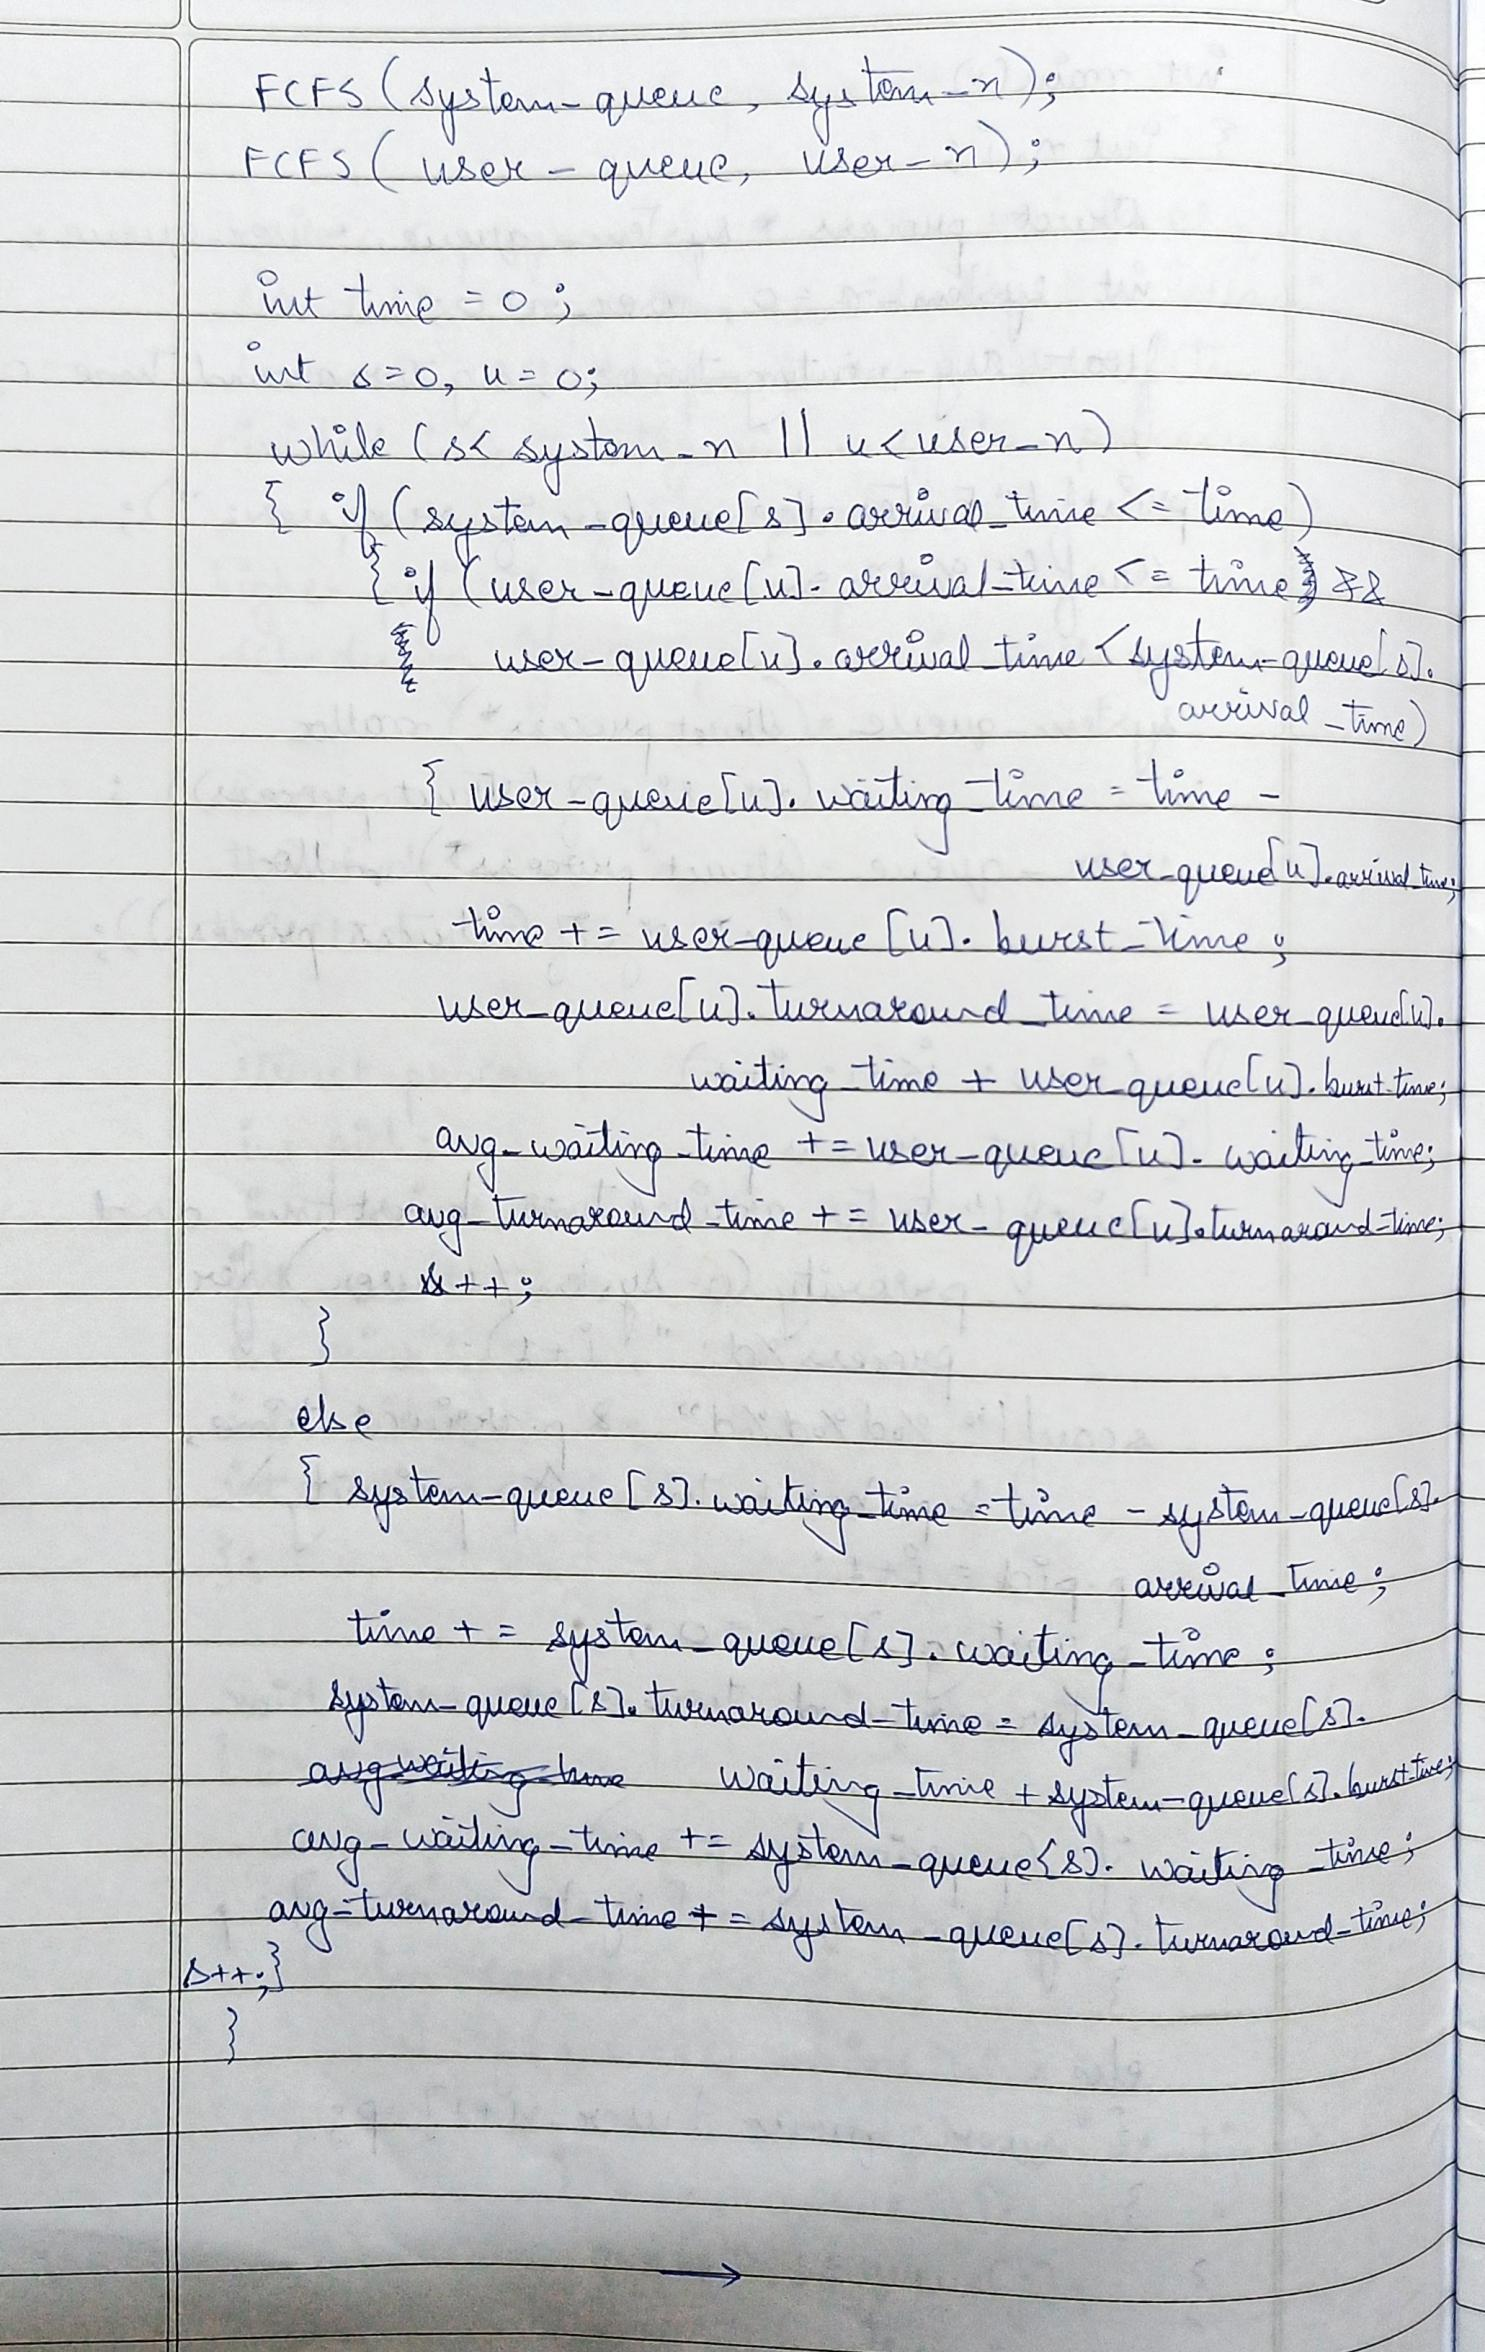 FCFS (system_queue, system_n);
FCFS (user_queue, user_n);
int time = 0;
int s=0, u=0;
while (s< system_n || u<user_n)
{ if (system_queue[s].arrival_time <= time)
{ if (user_queue[u].arrival_time <= time &&
user_queue[u].arrival_time <system_queue[s].
arrival_time)
{ user_queue[u].waiting_time = time -
user_queue[u].arrival_time;
time += user_queue[u].burst_time;
user_queue[u].turnaround_time = user_queue[u].
waiting_time + user_queue[u].burst_time;
avg_waiting_time += user_queue[u].waiting_time;
avg_turnaround_time += user_queue[u].turnaround_time;
++;
}
else
{ system_queue[s].waiting_time = time - system_queue[s].
arrival_time;
time += system_queue[s].waiting_time;
system_queue[s].turnaround_time = system_queue[s].
avg waiting_time waiting_time + system_queue[s].burst_time;
avg_waiting_time += system_queue[s].waiting_time;
avg_turnaround_time += system_queue[s].turnaround_time;
s++;}
}
→